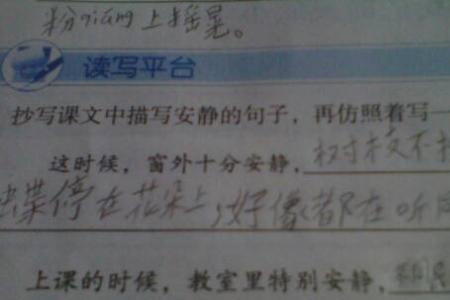 粉qian上摇晃。
读写平台
抄写课文中描写安静的句子，再仿照着写一
这时候，窗外十分安静，树枝不
蝶停在花朵上，好像都在听
上课的时候，教室里特别安静，